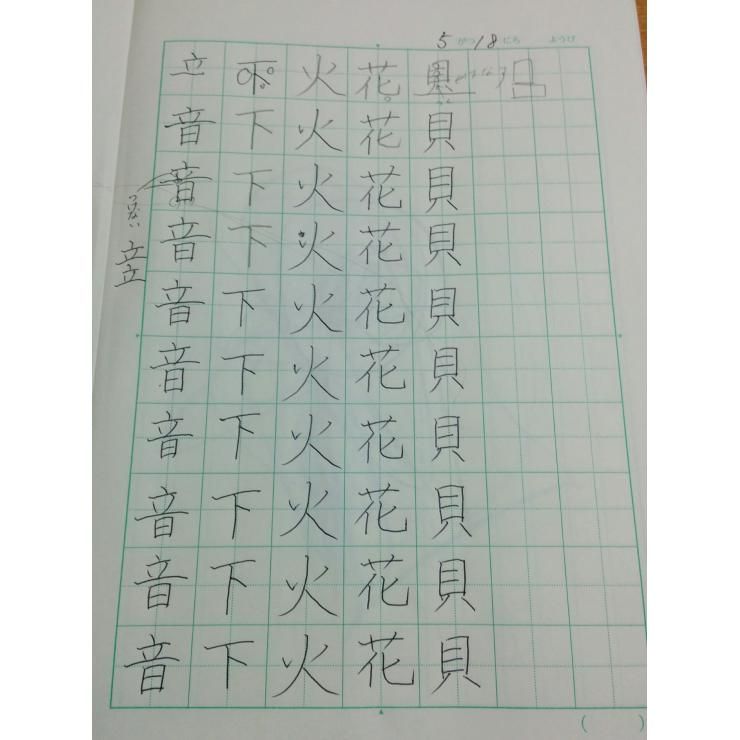 5がつ18にち ようび
立 下 火 花 貝
音 下 火 花 貝
音 下 火 花 貝
音 下 火 花 貝
音 下 火 花 貝
音 下 火 花 貝
音 下 火 花 貝
音 下 火 花 貝
音 下 火 花 貝
音 下 火 花 貝
つけない
立
立
( )